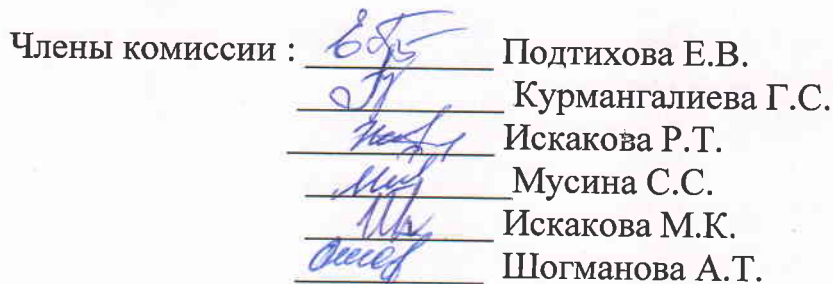 Члены комиссии : Подтихова Е.В.
Курмангалиева Г.С.
Искакова Р.Т.
Мусина С.С.
Искакова М.К.
Шогманова А.Т.